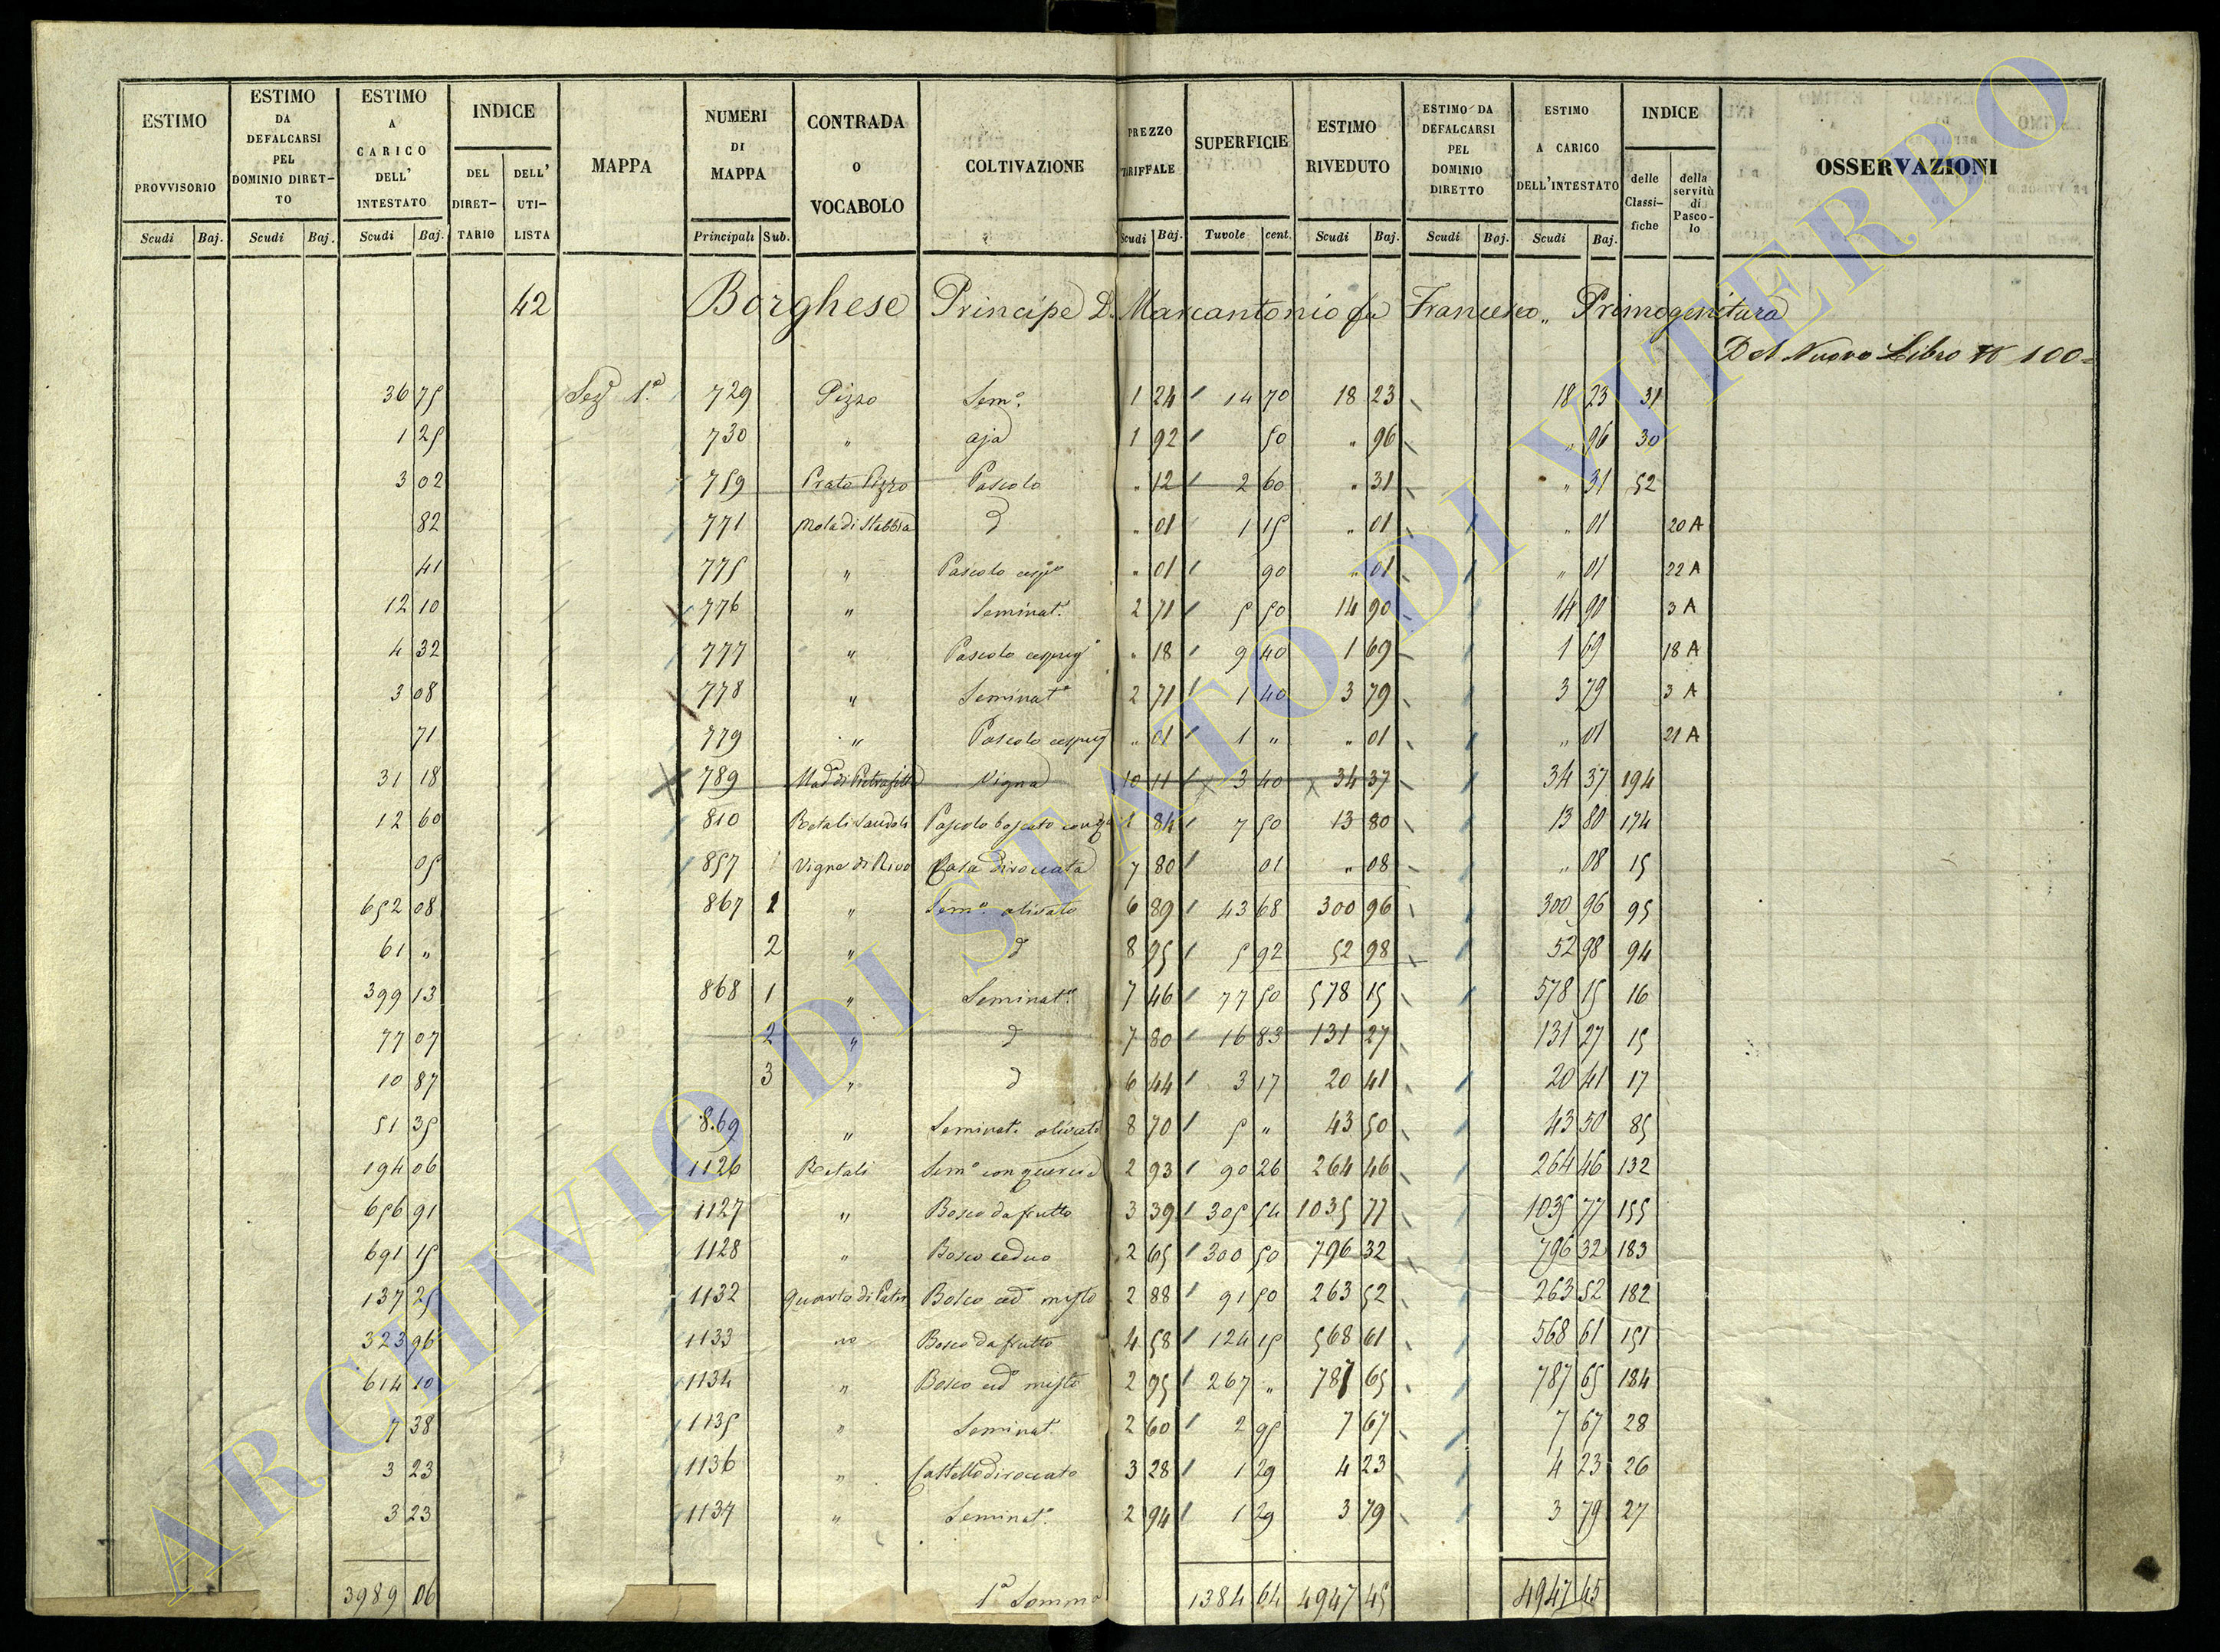 ESTIMO PROVVISORIO Scudi Baj.
ESTIMO DA DEFALCARSI PEL DOMINIO DIRETTO Scudi Baj.
ESTIMO A CARICO DELL' INTESTATO Scudi Baj.
INDICE DEL DIRETTARIO DELL' UTILISTA
MAPPA
NUMERI DI MAPPA Principali Sub.
CONTRADA O VOCABOLO
COLTIVAZIONE
PREZZO TARIFFALE Scudi Baj.
SUPERFICIE Tavole cent.
ESTIMO RIVEDUTO Scudi Baj.
ESTIMO DA DEFALCARSI PEL DOMINIO DIRETTO Scudi Baj.
ESTIMO A CARICO DELL'INTESTATO Scudi Baj.
INDICE delle Classifiche della servitù di Pascolo
OSSERVAZIONI
42 Borghese Principe D. Marcantonio fu Francesco „ Primogenitura
Del Nuovo Libro N 100=
36 75 Sez 1.a 729 Pizzo Sem.o 1 24 14 70 18 23 18 23 31
1 25 730 „ aja 1 92 50 „ 96 „ 96 30
3 02 759 Prato Pizzo Pascolo „ 12 2 60 „ 31 „ 31 52
82 771 Mola di Stabbia d „ 01 1 15 „ 01 „ 01 20 A
41 775 „ Pascolo cesp.o „ 01 90 „ 01 „ 01 22 A
12 10 776 „ Seminat.o 2 71 5 50 14 90 14 90 3 A
4 32 777 „ Pascolo cespug.o „ 18 9 40 1 69 1 69 18 A
3 08 778 „ Seminat.o 2 71 1 40 3 79 3 79 3 A
71 779 „ Pascolo cespug „ 01 1 „ „ 01 „ 01 21 A
31 18 789 Mad.a di Pietrafitta Vigna 10 11 3 40 34 37 34 37 194
12 60 810 Pascolo boscato 1 84 7 50 13 80 13 80 174
05 857 Vigna di Rivo Casa diroccata 7 80 01 „ 08 „ 08 15
652 08 867 1 „ Sem.o olivato 6 89 43 68 300 96 300 96 95
61 „ 2 „ d 8 95 5 92 52 98 52 98 94
399 13 868 1 „ Seminat.o 7 46 77 50 578 15 578 15 16
77 07 2 „ d 7 80 16 83 131 27 131 27 15
10 87 3 „ d 6 44 3 17 20 41 20 41 17
51 35 869 „ Seminat. olivato 8 70 5 „ 43 50 43 50 85
194 06 1126 Retali Sem.o con querce 2 93 90 26 264 46 264 46 132
656 91 1127 „ Bosco da frutto 3 39 305 54 1035 77 1035 77 155
691 15 1128 „ Bosco ceduo 2 65 300 50 796 32 796 32 183
137 25 1132 Quarto di Bosco ced.o misto 2 88 91 50 263 52 263 52 182
323 96 1133 Bosco da frutto 4 58 124 15 568 61 568 61 151
614 10 1134 „ Bosco ced.o misto 2 95 267 „ 787 65 787 65 184
7 38 1135 „ Seminat. 2 60 2 95 7 67 7 67 28
3 23 1136 „ Castello diroccato 3 28 1 29 4 23 4 23 26
3 23 1137 „ Seminat.o 2 94 1 29 3 79 3 79 27
3989 06 1.a Somma 1384 64 4947 45 4947 45
ARCHIVIO DI STATO DI VITERBO